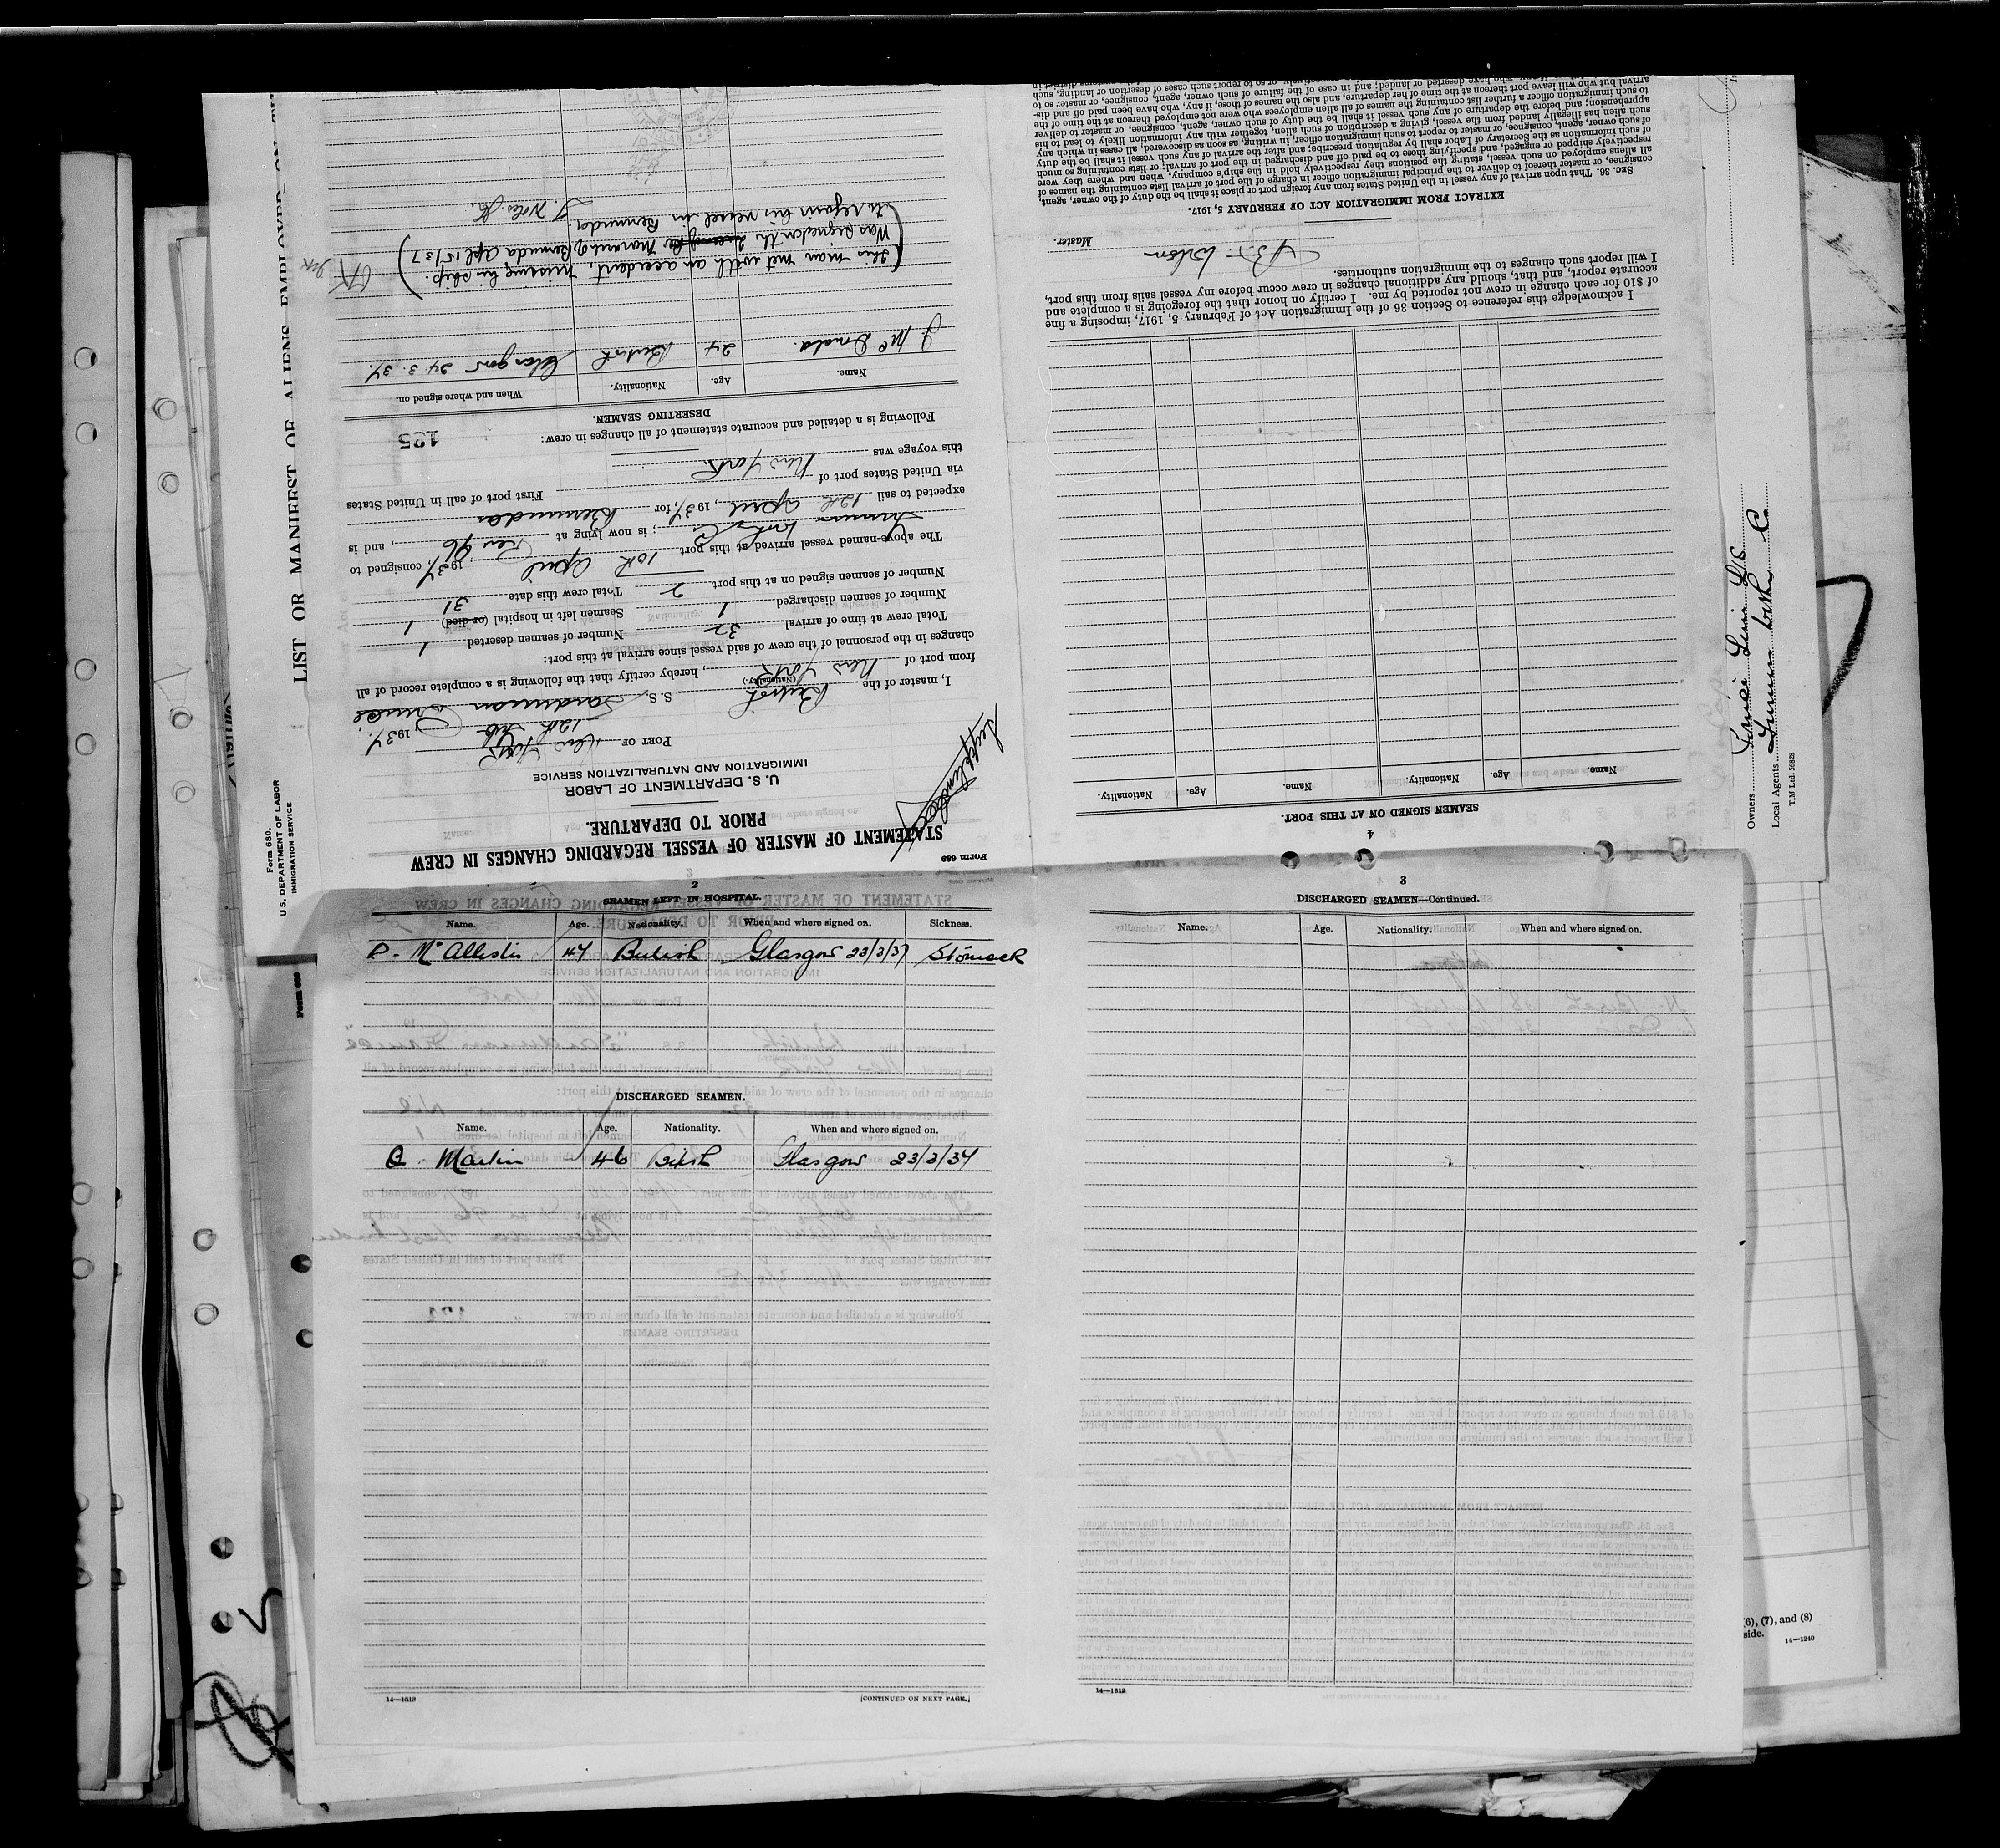 Form 680.
U. S. DEPARTMENT OF LABOR
IMMIGRATION SERVICE
LIST OR MANIFEST OF ALIENS EMPLOYED ON TH
Form 689
STATEMENT OF MASTER OF VESSEL REGARDING CHANGES IN CREW
PRIOR TO DEPARTURE.
U. S. DEPARTMENT OF LABOR
IMMIGRATION AND NATURALIZATION SERVICE
PORT OF New York
12th 1937
I, master of the British S. S. Sardinian Prince
(Nationality.)
from port of New York, hereby certify that the following is a complete record of all
changes in the personnel of the crew of said vessel since arrival at this port:
Total crew at time of arrival 32 Number of seamen deserted 1
Number of seamen discharged 1 Seamen left in hospital (or died) 1
Number of seamen signed on at this port 2 Total crew this date 31
The above-named vessel arrived at this port 10th April 1937, consigned to
Furness Withy Co; is now lying at Pier 96, and is
expected to sail 12th April, 1937, for Bermudas
via United States port of First port of call in United States
this voyage was New York
Following is a detailed and accurate statement of all changes in crew: 195
DESERTING SEAMEN.
Name. Age. Nationality. When and where signed on.
J. McDonald. 24 British Glasgow 24.3.37.
(This man met with an accident, missing his ship.
Was signed on the Monarch of Bermuda Apl 15/37)
to rejoin his vessel in Bermuda.
4
SEAMEN SIGNED ON AT THIS PORT.
Name. Age. Nationality. Name. Age. Nationality.
I acknowledge this reference to Section 36 of the Immigration Act of February 5, 1917, imposing a fine
of $10 for each change in crew not reported by me. I certify on honor that the foregoing is a complete and
accurate report, and that, should any additional changes in crew occur before my vessel sails from this port,
I will report such changes to the immigration authorities.
Master.
EXTRACT FROM IMMIGRATION ACT OF FEBRUARY 5, 1917.
SEC. 36. That upon arrival of any vessel in the United States from any foreign port or place it shall be the duty of the owner, agent,
consignee, or master thereof to deliver to the principal immigration officer in charge of the port of arrival lists containing the names of
all aliens employed on such vessel, stating the positions they respectively hold in the ship's company, when and where they were
respectively shipped or engaged, and specifying those to be paid off and discharged in the port of arrival; or lists containing so much
of such information as the Secretary of Labor shall by regulation prescribe; and after the arrival of any such vessel it shall be the duty
of such owner, agent, consignee, or master to report to such immigration officer, in writing, as soon as discovered, all cases in which any
such alien has illegally landed from the vessel, giving a description of such alien, together with any information likely to lead to his
apprehension; and before the departure of any such vessel it shall be the duty of such owner, agent, consignee, or master to deliver
to such immigration officer a further list containing the names of all alien employees who were not employed thereon at the time of the
arrival but who will leave port thereon at the time of her departure, and also the names of those, if any, who have been paid off and dis-
Owners
Local Agents Furness Withy Co
T.M Ltd. 50828
2
SEAMEN LEFT IN HOSPITAL.
Name. Age. Nationality. When and where signed on. Sickness.
P. McAllister 47 British Glasgow 23/3/37 Stomach
DISCHARGED SEAMEN.
Name. Age. Nationality. When and where signed on.
Martin 46 British Glasgow 23/3/37
14—1613 [CONTINUED ON NEXT PAGE.]
3
DISCHARGED SEAMEN—Continued.
Name. Age. Nationality. When and where signed on.
14—1613
(6), (7), and (8)
side. 14—1240